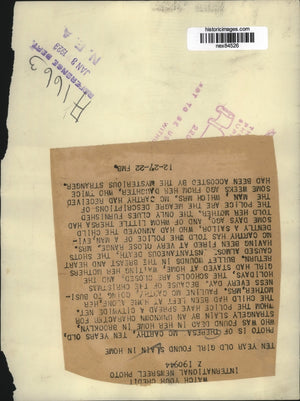 historicimages.com
nex84526
REFERENCE DEPT.
JAN 8 1923
N. E. A.
#1663
WATCH YOUR CREDIT
INTERNATIONAL NEWSREEL PHOTO
Z 190944
TEN YEAR OLD GIRL FOUND SLAIN IN HOME
PHOTO IS OF THERESA MC CARTHY, TEN YEARS OLD,
WHO WAS FOUND DEAD IN HER HOME IN BROOKLYN,
STRANGELY SLAIN BY AN UNKNOWN CHARACTER, FOR
WHOM THE POLICE HAVE SPREAD A CITYWIDE NET.
THE CHILD HAD BEEN LEFT AT HOME ALONE, HER
MOTHER, MRS. MALVINA MC CARTHY, GOING TO BUSI-
NESS EVERY DAY. BECAUSE OF THE CHRISTMAS
HOLIDAYS, THE SCHOOLS ARE CLOSED, AND THE
GIRL HAD STAYED AT HOME, WAITING HER MOTHERS
RETURN. BULLET WOUNDS IN THE BREAST AND HEART
CAUSED ALMOST INSTANTANEOUS DEATH, THE SHOTS
HAVING BEEN FIRED AT VERY CLOSE RANGE. MRS.
MC CARTHY HAS TOLD THE POLICE OF A MAN, EVI-
DENTLY A SAILOR, WHO HAD ANNOYED THE CHILD
SOME DAYS AGO, AND OF WHOM LITTLE THERESA HAD
TOLD HER MOTHER. THE ONLY CLUES FURNISHED
THE POLICE ARE THE MEAGRE DESCRIPTIONS OF
THE MAN, WHICH MRS. MC CARTHY HAD RECEIVED
SOME WEEKS AGO FROM HER DAUGHTER, WHO TWICE
HAD BEEN ACCOSTED BY THE MYSTERIOUS STRANGER.
12-27-22 FMB.